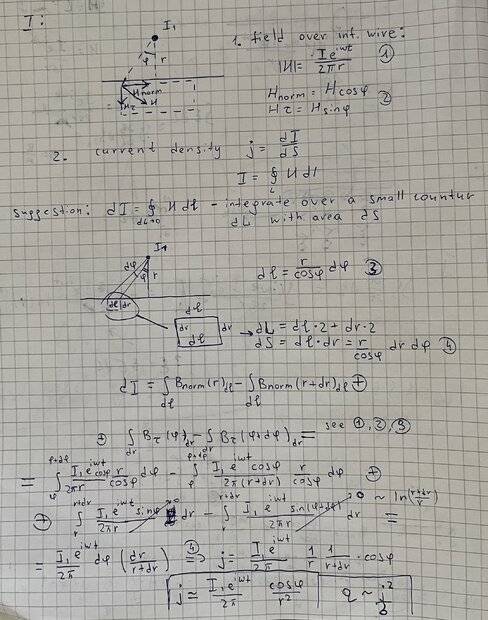 I:
I₁
φ r
H norm
Hτ H
1. field over inf. wire:
|H| = I e^{iωt} / 2πr ①
H norm = H cosφ
Hτ = H sinφ ②
2. current density j = dI/dS
I = ∮_L H dl
suggestion: dI = ∮_{dL→0} H dl - integrate over a small countur
dL with area dS
I₁
dφ φ r
dl dr
dl = r/cosφ dφ ③
dl
dr dr
dl
→ dL = dl·2 + dr·2
dS = dl·dr = r/cosφ dr dφ ④
dI = ∫_{dl} B norm(r) dl - ∫_{dl} B norm(r+dr) dl ⊕
⊕ ∫_{dr} Bτ(φ) dr - ∫_{dr} Bτ(φ+dφ) dr = see ①,②,③
= ∫_φ^{φ+dφ} I₁e^{iωt} cosφ / 2πr · r/cosφ dφ - ∫_φ^{φ+dφ} I₁e^{iωt} cosφ / 2π(r+dr) · r/cosφ dφ ⊕
⊕ ∫_r^{r+dr} I₁e^{iωt} sinφ / 2πr dr - ∫_r^{r+dr} I₁e^{iωt} sin(φ+dφ) / 2πr dr → 0 ~ ln((r+dr)/r) =
= I₁e^{iωt}/2π dφ (dr/(r+dr)) ④⇒ j = I₁e^{iωt}/2π · 1/r · 1/(r+dr) · cosφ
j ≃ I₁e^{iωt}/2π · cosφ/r² q ~ j²/